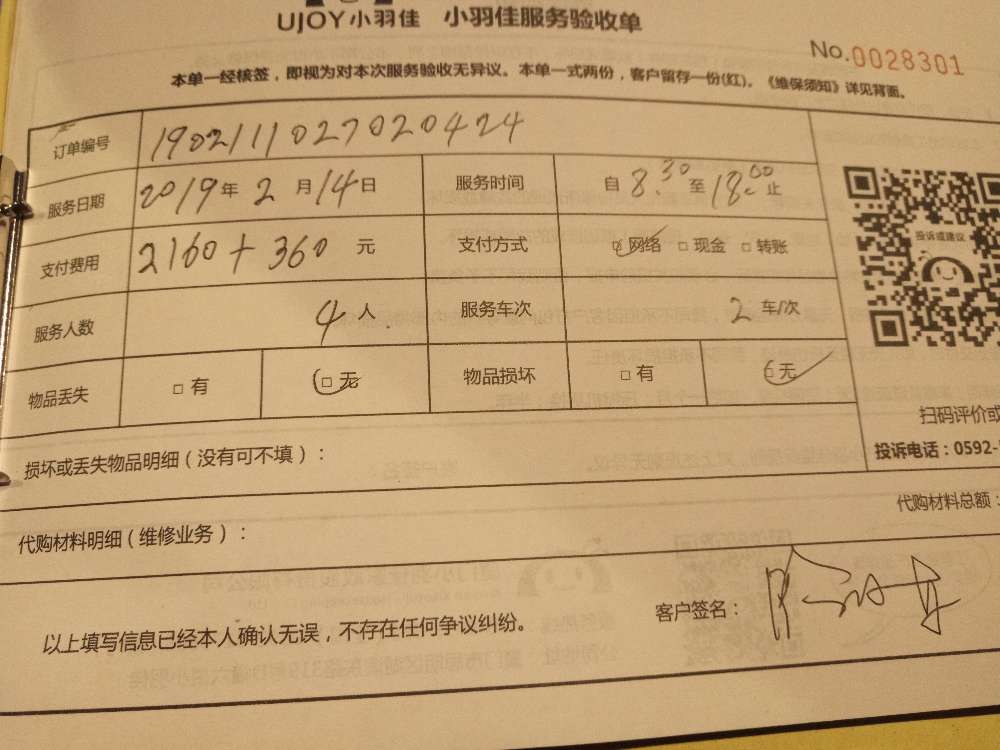 UJOY小羽佳 小羽佳服务验收单
No.0028301
本单一经核签，即视为对本次服务验收无异议。本单一式两份，客户留存一份(红)。《维保须知》详见背面。
订单编号 190211027020424
服务日期 2019年2月14日 服务时间 自8:30至18:00止
支付费用 2160+360元 支付方式 网络 现金 转账
服务人数 4人 服务车次 2车/次
物品丢失 有 无 物品损坏 有 无
投诉或建议
扫码评价或
投诉电话：0592-
损坏或丢失物品明细（没有可不填）：
代购材料明细（维修业务）：
代购材料总额：
以上填写信息已经本人确认无误，不存在任何争议纠纷。
客户签名：